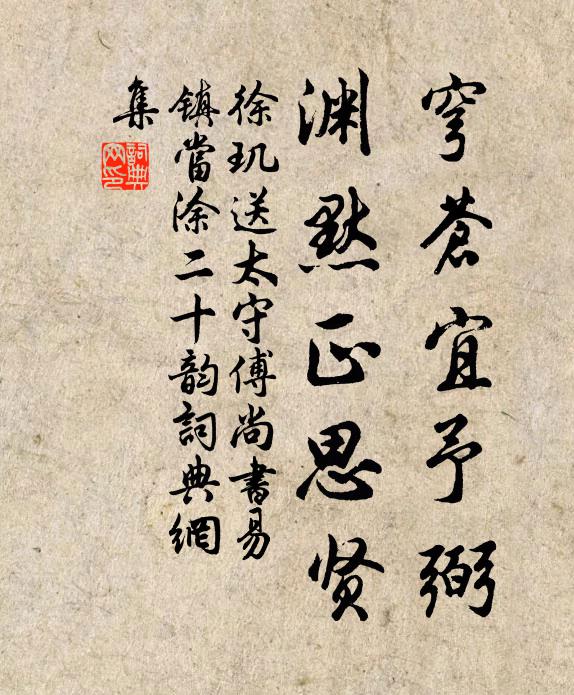 穹苍宜予弼
渊默正思贤
徐玑送太守傅尚書易
镇當涂二十韵詞典網
集
詞典網印